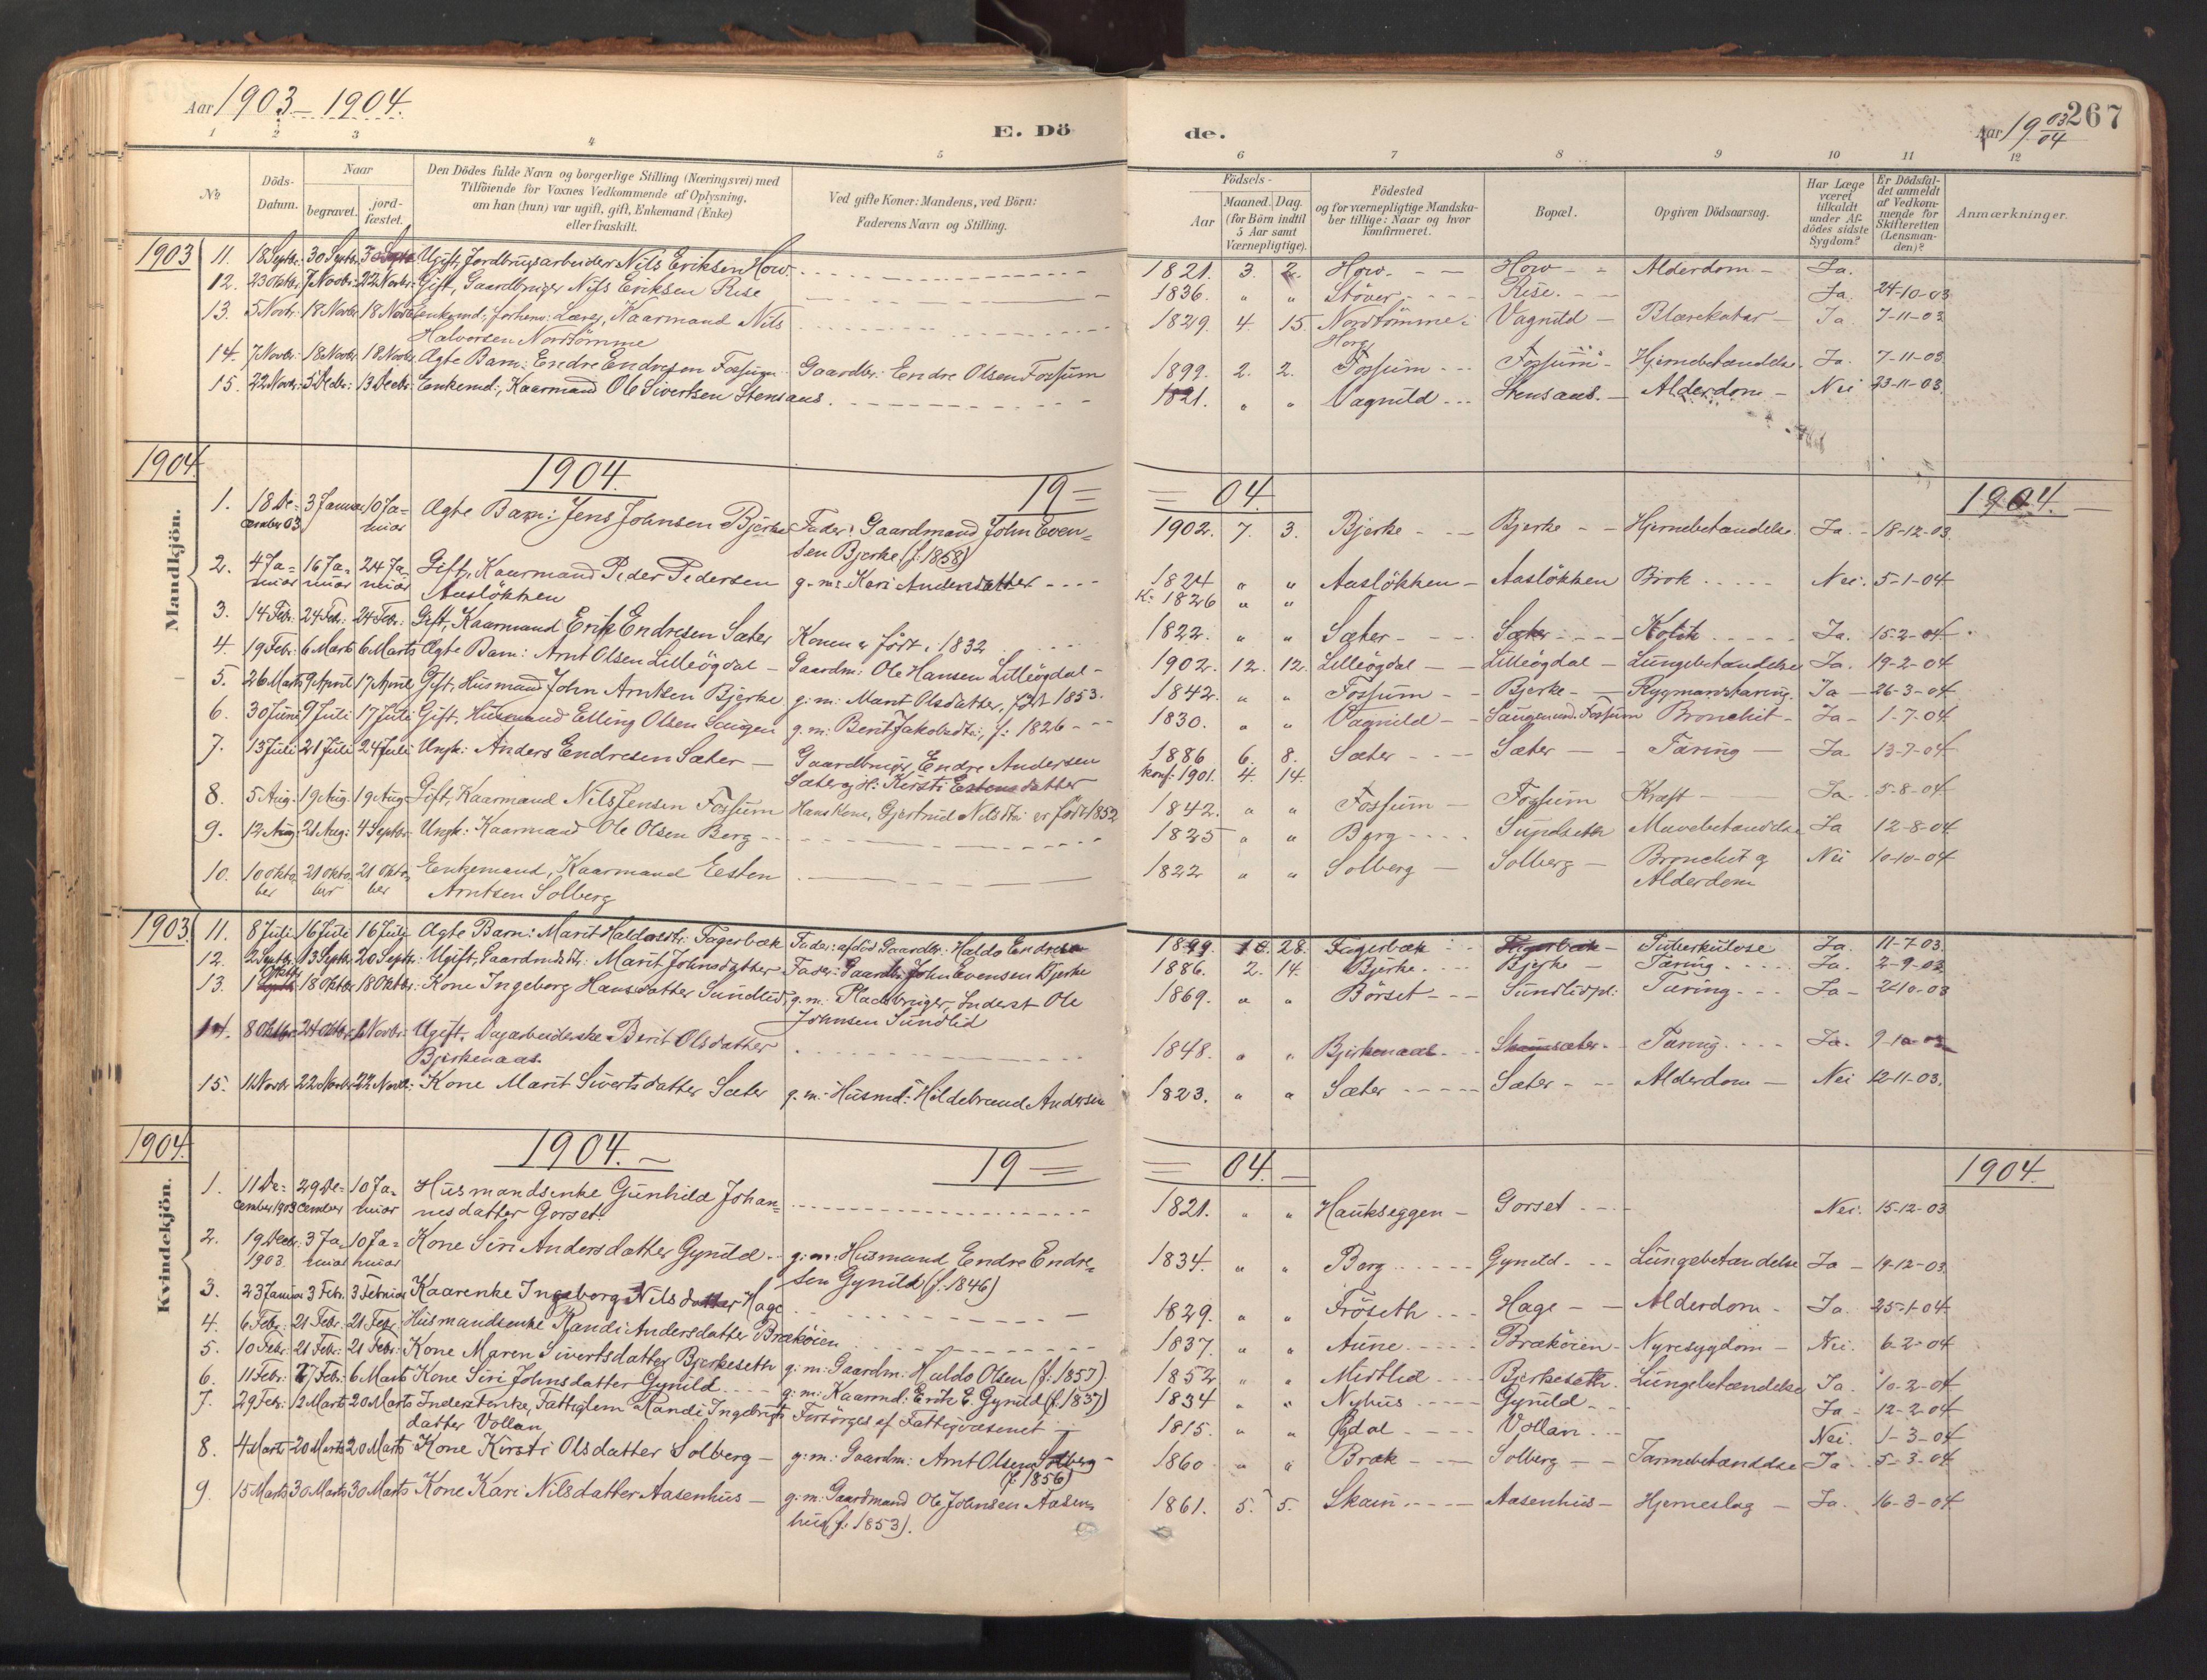 Aar 1903 – 1904.
E. Dö
de.
Aar 19 03/04
267
1 2 3 4 5 6 7 8 9 10 11 12
No
Döds-Datum.
Naar
begravet.
jord-fæstet.
Den Dödes fulde Navn og borgerlige Stilling (Næringsvei) med
Tilföiende for Voxnes Vedkommende af Oplysning,
om han (hun) var ugift, gift, Enkemand (Enke)
eller fraskilt.
Ved gifte Koner: Mandens, ved Börn:
Faderens Navn og Stilling.
Födsels-
Aar
Maaned. Dag.
(for Börn indtil
5 Aar samt
Værnepligtige).
Födested
og for værnepligtige Mandska-
ber tillige: Naar og hvor
konfirmeret.
Bopæl.
Opgiven Dödsaarsag.
Har Læge
været
tilkaldt
under Af-
dödes sidste
Sygdom?
Er Dödsfal-
det anmeldt
af Vedkom-
mende for
Skifteretten
(Lensman-
den)?
Anmærkninger.
Mandkjön.
1903
11. 18 Septbr. 30 Septbr. 30 Septbr. Ugift, Jordbrugsarbeider Nils Eriksen How. 1821. 3. 2. How. How Alderdom Ja.
12. 23 Oktbr. 7 Novbr. 22 Novbr. Gift, Gaardbruger Nils Eriksen Rise 1836. " " Stöver Rise. Ja. 24-10-03
13. 5 Novbr. 18 Novbr. 18 Novbr. Enkemd., forhenv: Lærer, Kaarmand Nils 1829. 4. 15. Nordtömme i Vagnild Blærekatar Ja 7-11-03
Halvorsen Nordtömme Horg
14. 7 Novbr. 18 Novbr. 18 Novbr. Ægte Barn: Endre Endresen Fossum Gaardbr. Endre Olsen Fossum 1899. 2. 2. Fossum Fossum Hjernebetændelse. Ja. 7-11-03
15. 22 Novbr. 5 Decbr. 13 Decbr. Enkemd., Kaarmand Ole Sivertsen Stensaas. 1821. " " Vagnild Stensaas. Alderdom Nei 23-11-03.
1904. 1904. 19 = = 04. 1904.
1. 18 De- 3 Januar 10 Ja- Ægte Barn: Jens Johnsen Bjerke Fader: Gaardmand John Even- 1902. 7. 3. Bjerke Bjerke Hjernebetændelse. Ja. 18-12-03
cember 03 nuar sen Bjerke (f. 1858)
2. 4 Ja- 16 Ja- 24 Ja- Gift, Kaarmand Peder Pedersen g. m: Kari Andersdatter 1824 " " Aaslökken Aaslökken Brok Nei. 5-1-04
nuar nuar nuar Aaslökken K: 1826 " "
3. 14 Febr. 24 Febr. 24 Febr. Gift, Kaarmand Erik Endresen Sæter Konen er född. 1832 1822. " " Sæter Sæter Kolik Ja. 15-2-04.
4. 19 Febr. 6 Marts 6 Marts Ægte Barn: Arnt Olsen Lilleögdal Gaardm: Ole Hansen Lilleögdal 1902. 12. 12. Lilleögdal Lilleögdal Lungebetændelse Ja. 19-2-04
5. 26 Marts 9 April 17 April Gift, Husmand John Arntsen Bjerke g. m: Marit Olsdatter, född 1853. 1842. " " Fossum Bjerke Rygmarvstæring. Ja 26-3-04
6. 30 Juni 9 Juli 17 Juli Gift, Husmand Elling Olsen Saugen g. m: Berit Jakobsdtr., f: 1826 1830. " " Vagnild Saugen und. Fossum Bronchit Ja 1-7-04.
7. 13 Juli 21 Juli 24 Juli Ungk: Anders Endresen Sæter Gaardbruger Endre Andersen 1886 6. 8. Sæter Sæter Tæring Ja 13-7-04
Sæter g. H: Kirsti Estensdatter konf: 1901. 4. 14.
8. 5 Aug. 19 Aug. 19 Aug. Gift, Kaarmand Nils Jensen Fossum Hans Kone, Gjertrud Nilsdtr. er född 1852 1842. " " Fossum Fossum Kræft Ja. 5-8-04
9. 12 Aug. 21 Aug: 4 Septbr. Ungk: Kaarmand Ole Olsen Berg 1825 " " Berg Sundseth Mavebetændelse Ja 12-8-04
10. 10 Okto- 21 Okto- 21 Okto- Enkemand, Kaarmand Esten 1822 " " Solberg Solberg Bronchit og Nei 10-10-04
ber ber ber Arntsen Solberg Alderdom
Kvindekjön.
1903.
11. 8 Juli 16 Juli 16 Juli Ægte Barn: Marit Haldosdtr. Fagerbæk Fader: afdöd Gaardbr. Haldo Endresen 1899. 10. 28. Fagerbæk Fagerbæk Tuberkulose Ja. 11-7-03.
12. 2 Septbr. 13 Septbr. 20 Septbr. Ugift, Gaardmdsdtr: Marit Johnsdatter Fader: Gaardb. John Evensen Bjerke 1886. 2. 14. Bjerke Bjerke Tæring Ja. 2-9-03
13. 1 Oktbr 18 Oktbr 18 Oktbr. Kone Ingeborg Hansdatter Sundlid g. m. Pladsbruger, Inderst Ole 1869. " " Börset Sundlid pl: Tæring Ja 2-10-03
Johnsen Sundlid
14. 8 Oktbr. 24 Oktbr. 1 Novbr. Ugift, Dagarbeiderske Berit Olsdatter 1848. " " Bjerkenaas Tæring Ja. 9-10-03
Bjerkenaas
15. 11 Novbr 22 Novbr 22 Novbr: Kone Marit Sivertsdatter Sæter g. m: Husmd: Hildebrand Andersen 1823. " " Sæter Sæter Alderdom Nei 12-11-03.
1904. 1904. 19 = = 04. 1904.
1. 11 De- 29 De- 10 Ja- Husmandsenke Gunhild Johan- 1821. " " Haukseggen Gorset Nei. 15-12-03
cember 1903 cember nuar nesdatter Gorset.
2. 19 Decbr. 3 Ja- 10 Ja- Kone Siri Andersdatter Gynild g. m: Husmand Endre Endre- 1834. " " Berg Gynild Lungebetændelse Ja 19-12-03.
1903. nuar nuar sen Gynild (f. 1846)
3. 23 Januar 3 Febr. 3 Februar Kaarenke Ingeborg Nilsdatter Hage 1829. " " Fröseth Hage Alderdom Ja. 25-1-04
4. 6 Febr. 21 Febr. 21 Febr. Husmandsenke Randi Andersdatter Bræköien 1837. " " Aune Bræköien Nyresygdom Nei. 6-2-04
5. 10 Febr. 21 Febr. 21 Febr. Kone Maren Sivertsdatter Bjerkeseth g. m: Gaardm: Haldo Olsen (f. 1857). 1852 " " Midtlid Bjerkeseth Lungebetændelse Ja. 10-2-04
6. 11 Febr. 27 Febr. 6 Marts Kone Siri Johnsdatter Gynild g. m: Kaarmd: Erik E. Gynild (f. 1837) 1834 " " Nyhus Gynild Ja 12-2-04
7. 29 Febr. 12 Marts 20 Marts Inderstenke, Fattiglem Randi Ingebrigts Forsörges af Fattigvæsenet 1815. " " Ögdal Vollan Nei. 1-3-04
datter Vollan
8. 4 Marts 20 Marts 20 Marts Kone Kirsti Olsdatter Solberg g. m: Gaardm: Arnt Olsen Solberg 1860 " " Bræk Solberg Tarmebetændelse Ja 5-3-04
(f. 1856)
9. 15 Marts 30 Marts 30 Marts Kone Kari Nilsdatter Aasenhus g. m: Gaardmand Ole Johnsen Aasen- 1861. 5. 5. Skain Aasenhus Hjerneslag Ja. 16-3-04
hus (f. 1853).